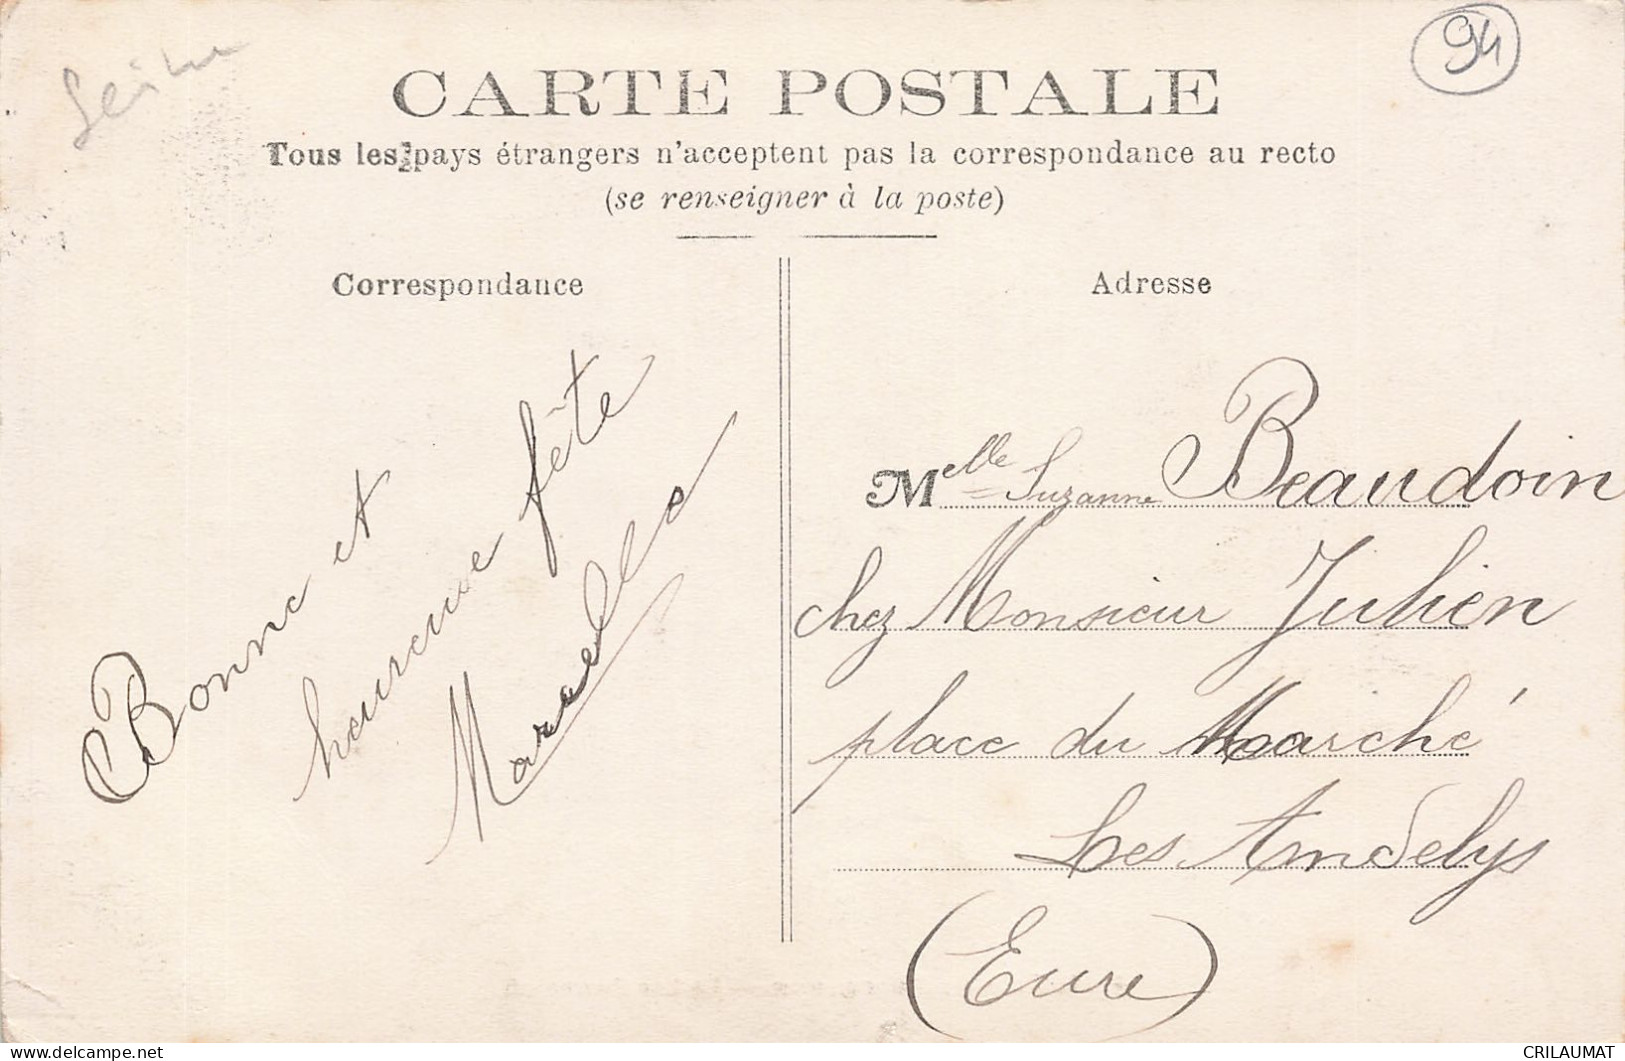 94
CARTE POSTALE
Tous les pays étrangers n'acceptent pas la correspondance au recto
(se renseigner à la poste)
Correspondance
Adresse
Bonne et
heureuse fête
Marcelle
Melle Suzanne Beaudoin
chez Monsieur Julien
place du Marché
Les Andelys
(Eure)
CRILAUMAT